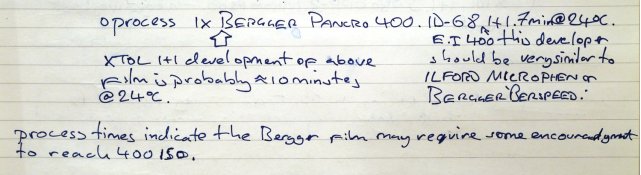 oprocess 1x BERGGER PANCRO 400. ID-68 1+1. 7min@24°C.
E.I 400 this developer
XTOL 1+1 development of above
should be very similar to
film is probably ≈10 minutes
ILFORD MICROPHEN or
@24°C.
BERGGER 'BERSPEED.'
process times indicate the Bergger film may require some encouragment
to reach 400 ISO.